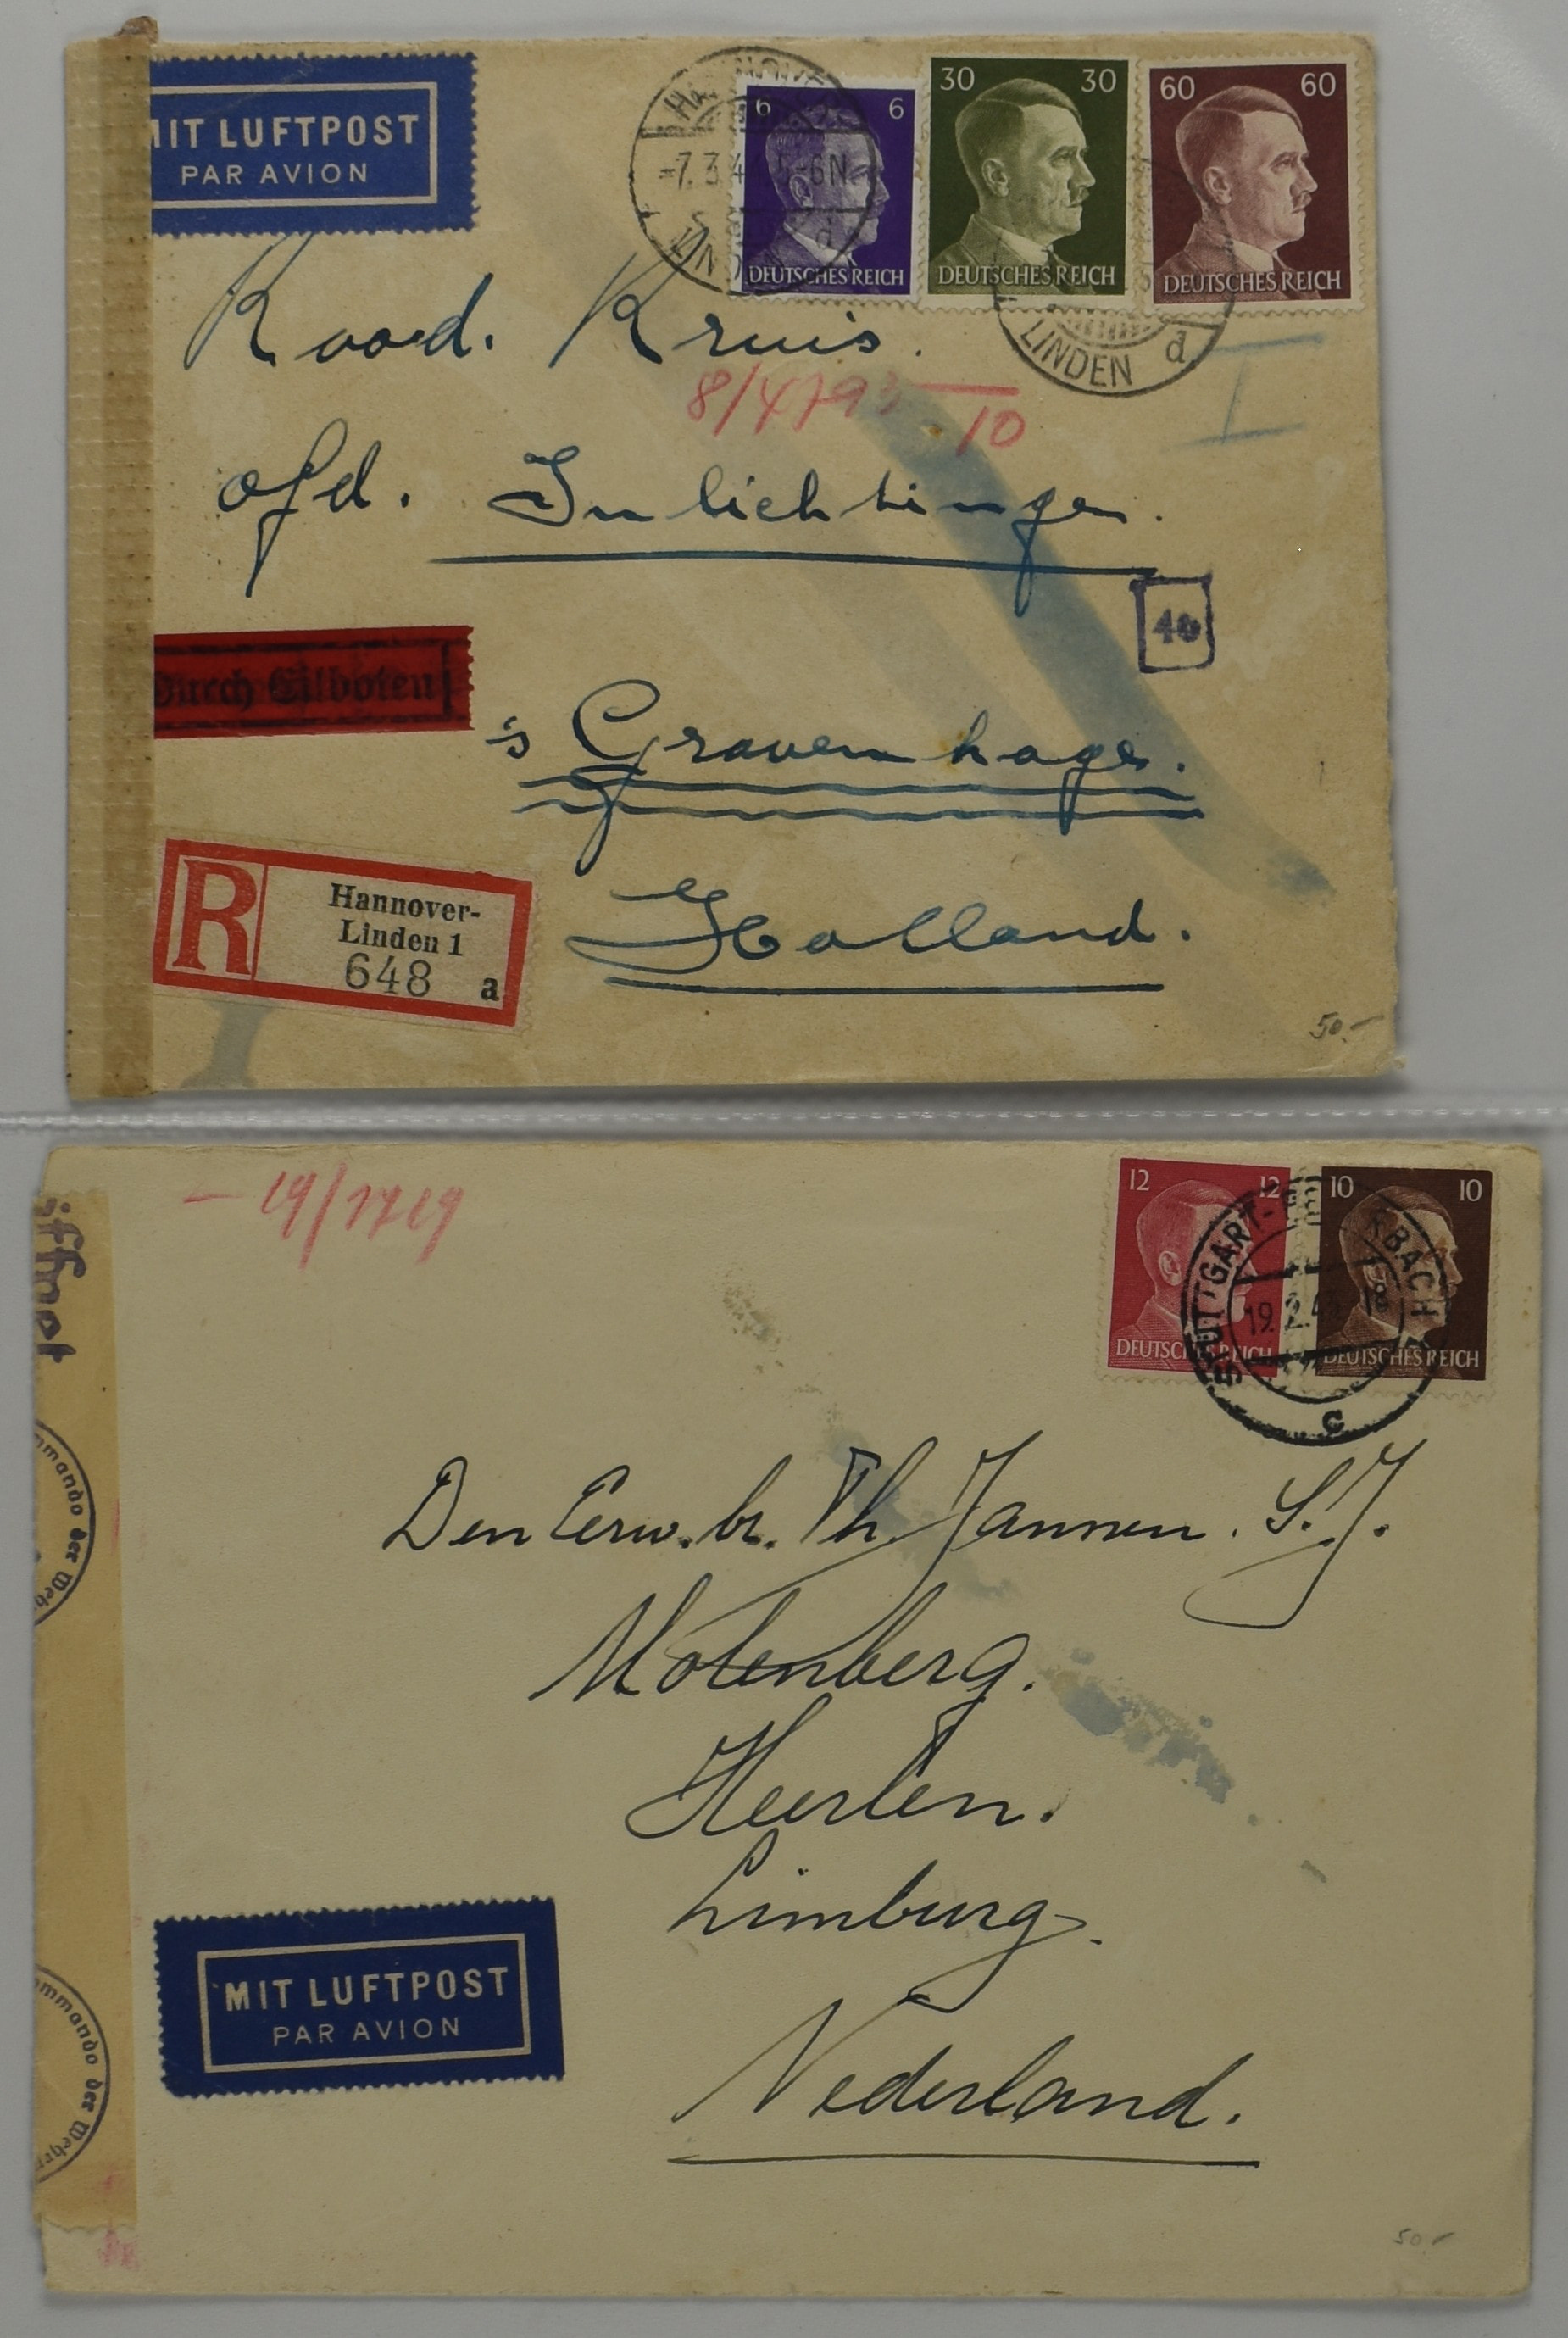 MIT LUFTPOST
PAR AVION
6 6
DEUTSCHES REICH
30 30
DEUTSCHES REICH
60 60
DEUTSCHES REICH
-7.3.4 -6N
LINDEN d
Rood. Kruis.
8/4793 10
I
afd. Inlichtingen.
46
Durch Eilboten
's Gravenhage.
Holland.
R
Hannover-
Linden 1
648 a
50.-
- 19/1719
öffnet
12 12
DEUTSCHES REICH
10 10
DEUTSCHES REICH
STUTTGART- BACH
19.2.43
c
ommando der Wehr
Den Eerw. br. Th. Jannen. S.J.
Molenberg.
Heerlen.
Limburg.
MIT LUFTPOST
PAR AVION
ommando der Wehrm
Nederland.
50.-